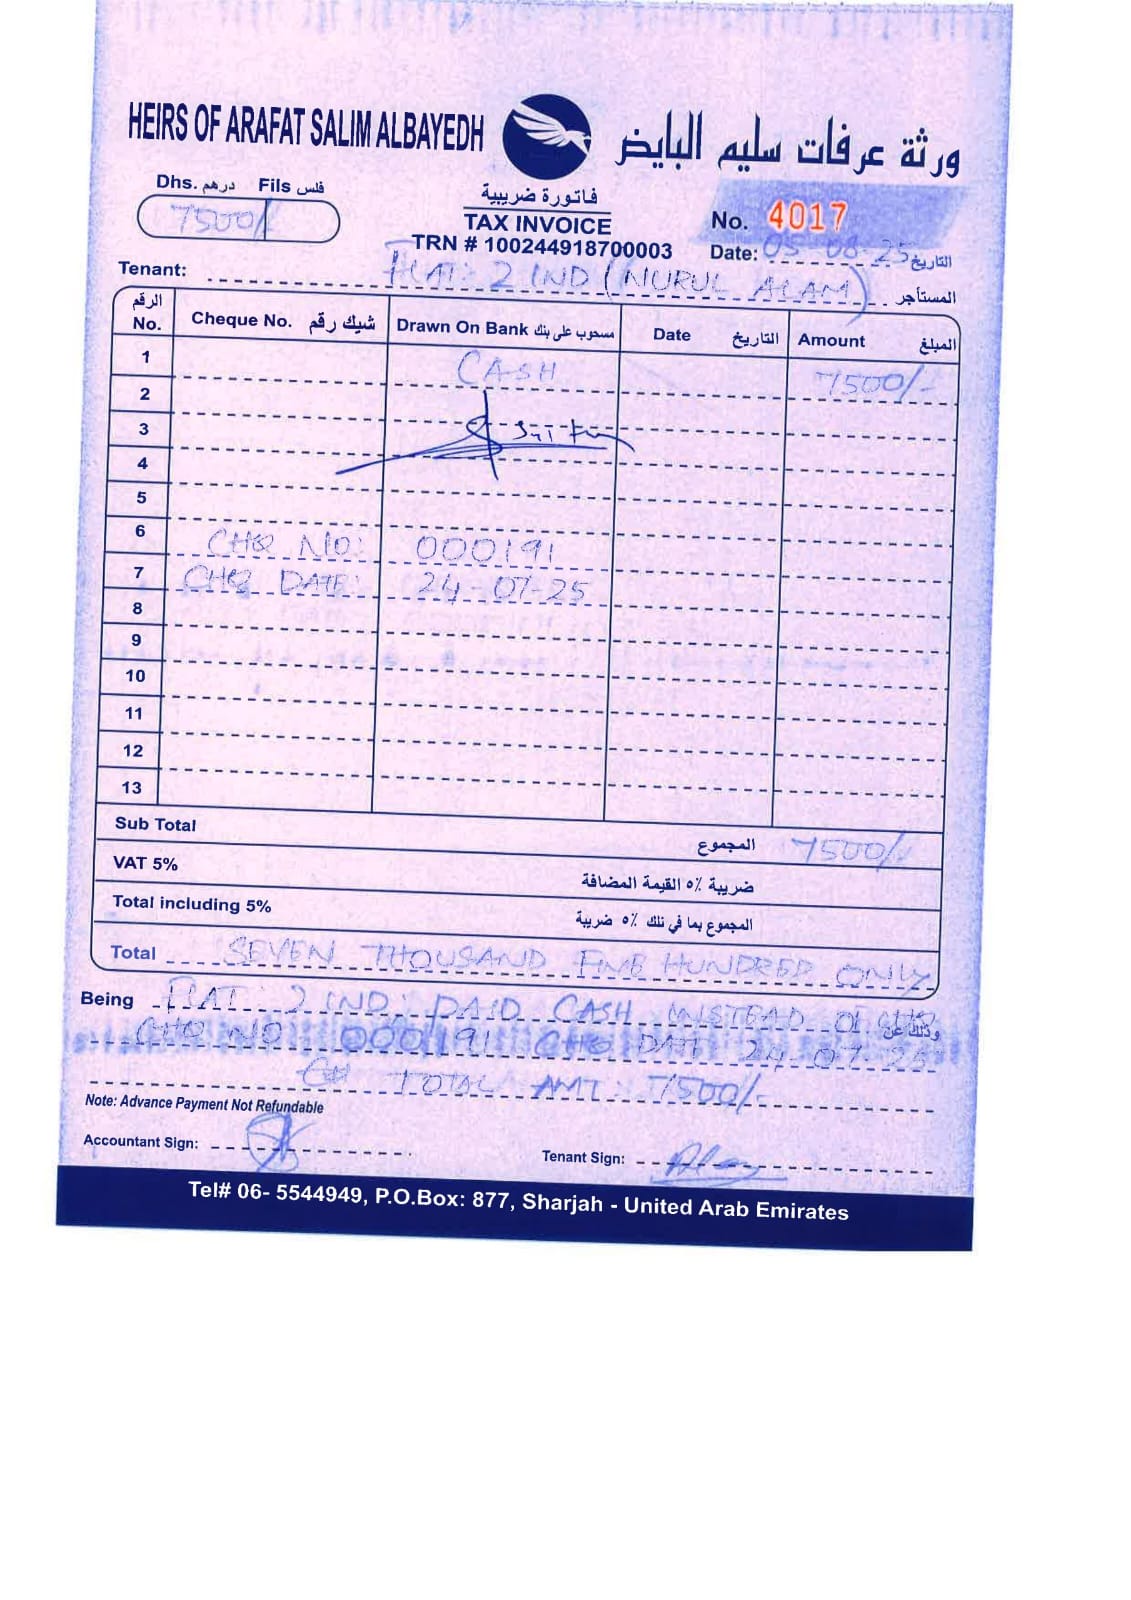 HEIRS OF ARAFAT SALIM ALBAYEDH ورثة عرفات سليم البايض
Dhs. درهم Fils فلس
7500/-
فاتورة ضريبية
TAX INVOICE
TRN # 100244918700003
No. 4017
Date: 05-08-25 التاريخ
Tenant: FLAT: 2 IND (NURUL ALAM) المستأجر
الرقم No. Cheque No. شيك رقم Drawn On Bank مسحوب على بنك Date التاريخ Amount المبلغ
1 CASH 7500/-
2
3
4
5
6 CHQ NO: 000191
7 CHQ DATE: 24-07-25
8
9
10
11
12
13
Sub Total المجموع 7500/-
VAT 5% ضريبة ٥٪ القيمة المضافة
Total including 5% المجموع بما في تلك ٥٪ ضريبة
Total SEVEN THOUSAND FIVE HUNDRED ONLY
Being FLAT: 2 IND: PAID CASH INSTEAD OF CHQ وذلك عن
CHQ NO 000191 CHQ DATE 24-07-25
TOTAL AMT: 7500/-
Note: Advance Payment Not Refundable
Accountant Sign: Tenant Sign:
Tel# 06- 5544949, P.O.Box: 877, Sharjah - United Arab Emirates